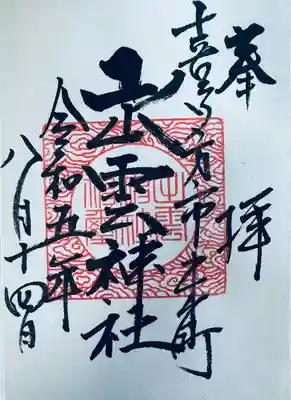 奉拝
喜多方市町
出雲神社
令和五年
八月十四日